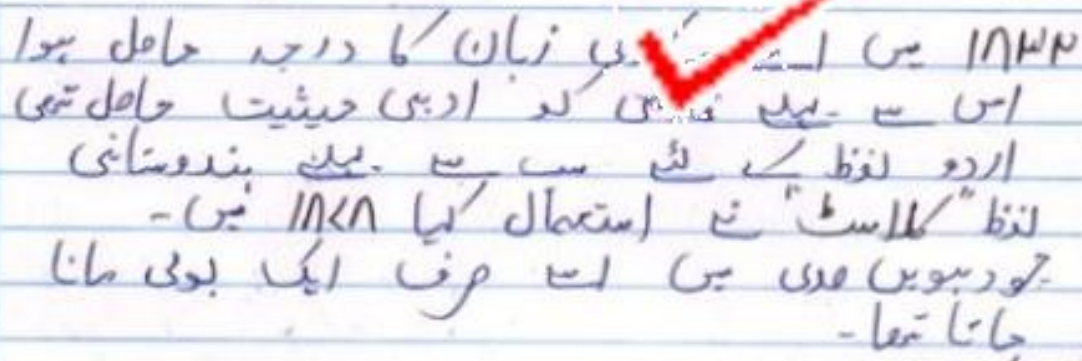 ۱۸۳۲ میں اسے زبان کا درجہ حاصل ہوا
اس سے پہلے کو ادبی حیثیت حاصل تھی
اردو لفظ کے لئے سب سے پہلے ہندوستانی
لفظ "کلاسٹ" نے استعمال کیا ۱۸۷۸ میں۔
چودہویں صدی میں اسے صرف ایک بولی مانا
جاتا تھا۔